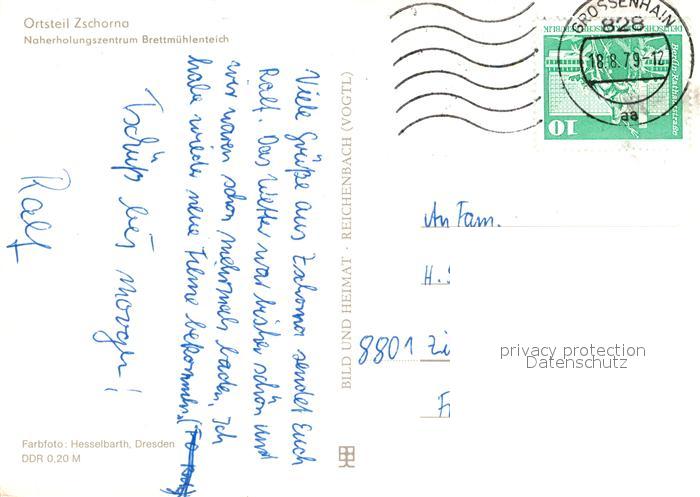 Ortsteil Zschorna
Naherholungszentrum Brettmühlenteich
Viele Grüße aus Zschorna sendet Euch
Ralf. Das Wetter war bisher schön und
wir waren schon mehrmals baden. Ich
habe wieder neue Filme bekommen.
Tschüß bis morgen!
Ralf
Farbfoto: Hesselbarth, Dresden
DDR 0,20 M
BILD UND HEIMAT · REICHENBACH (VOGTL)
GROSSENHAIN
828
18.8.79-12
aa
DEUTSCHE DEMOKRATISCHE REPUBLIK
Berlin, Rathausstraße
10
An Fam.
H.
8801 Zi
F
privacy protection
Datenschutz